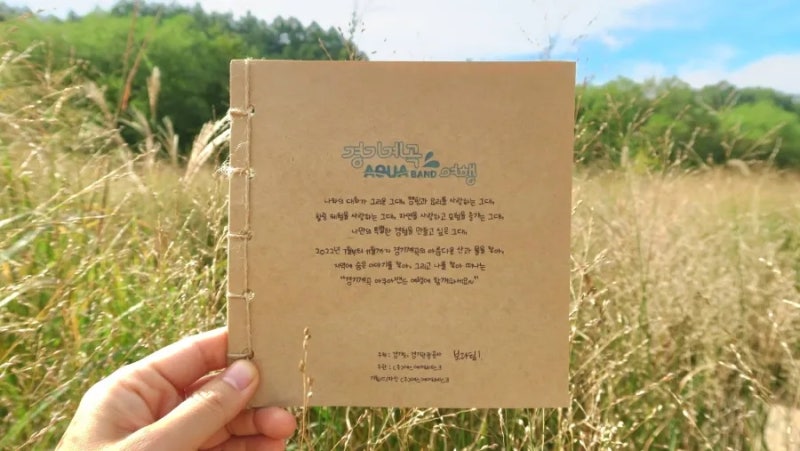 경기계곡
AQUA BAND 여행
나와의 대화가 그리운 그대. 캠핑과 요리를 사랑하는 그대.
힐링 체험을 사랑하는 그대. 자연을 사랑하고 모험을 즐기는 그대.
나만의 특별한 경험을 만들고 싶은 그대.
2022년 7월부터 11월까지 경기계곡의 아름다운 산과 물을 찾아,
지역에 숨은 이야기를 찾아, 그리고 나를 찾아 떠나는
"경기계곡 아쿠아밴드 여행에 함께하세요~"
주최 : 경기도, 경기관광공사
주관 :